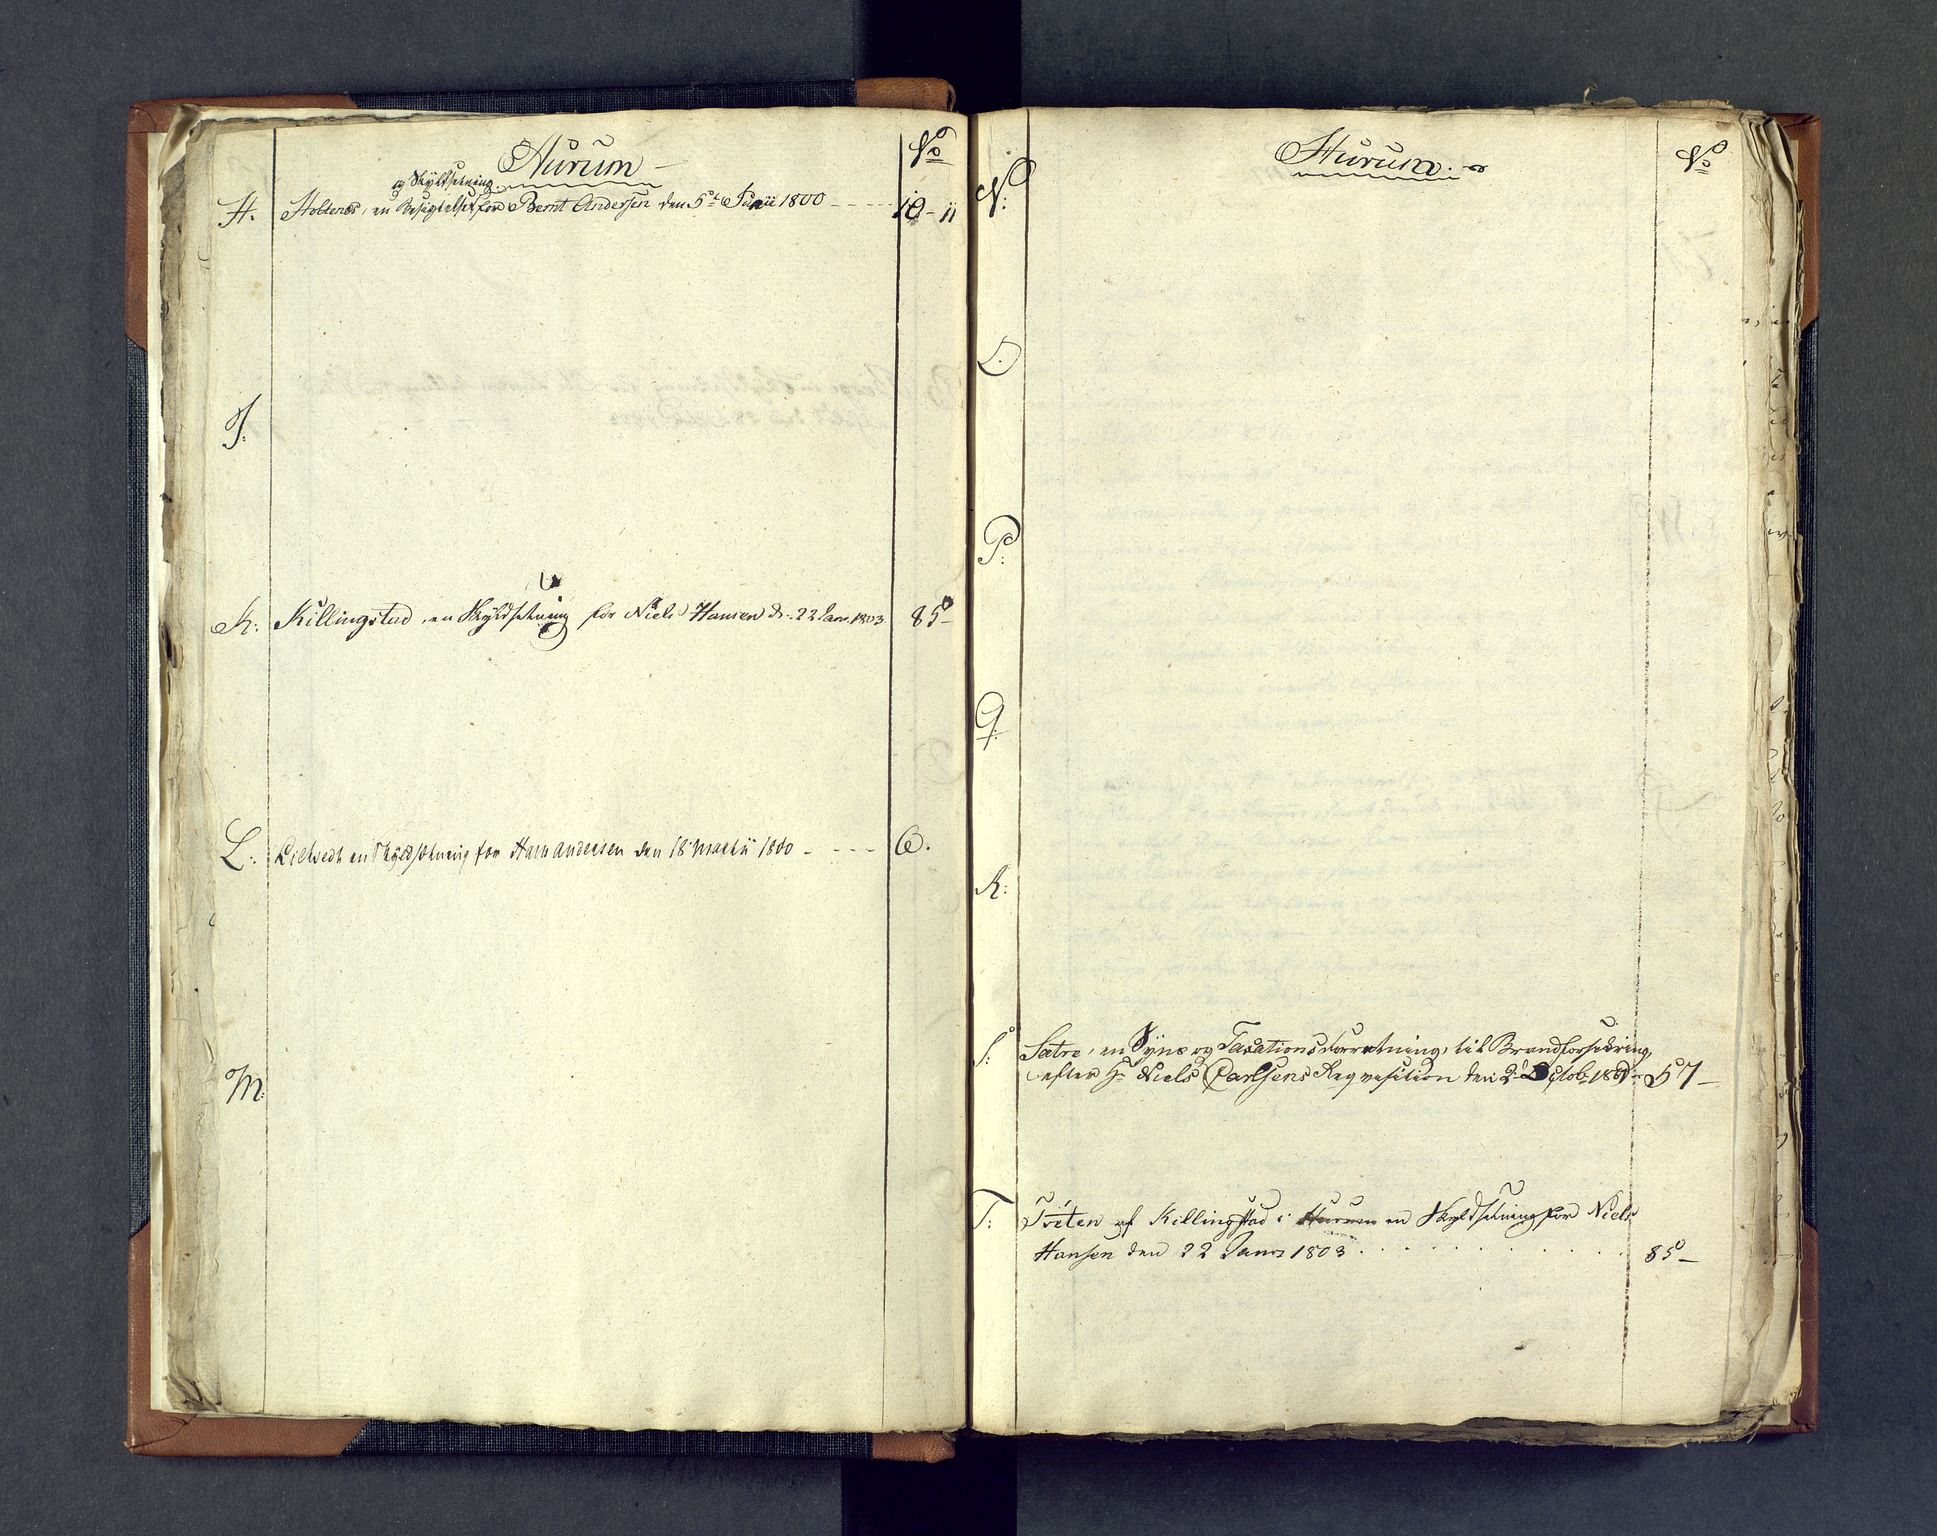 Hurum
No
og Skyldsetning
H. Holtenes, en Besigtelse for Bernt Andersen den 5te Junii 1800 - - - - 10-11
I:
K: Killingstad, en Skyldsetning for Niels Hansen d: 22 Janr. 1803 85-
L: en Skyldsætning for Hans Andersen den 18 Martii 1800 - - - - 6.
M:
Hurum.
No
N:
O.
P:
Q.
R:
S: Sætre, en Syns og Taxationsforretning, til Brandforsikring,
efter Hr Niels Carlsens Requesition den 2d Octobr 57-
T: Tveten af Killingstad i Hurum en Skyldsetning for Niels
Hansen den 22 Janr 1803 . . . . . . . . . . 85-